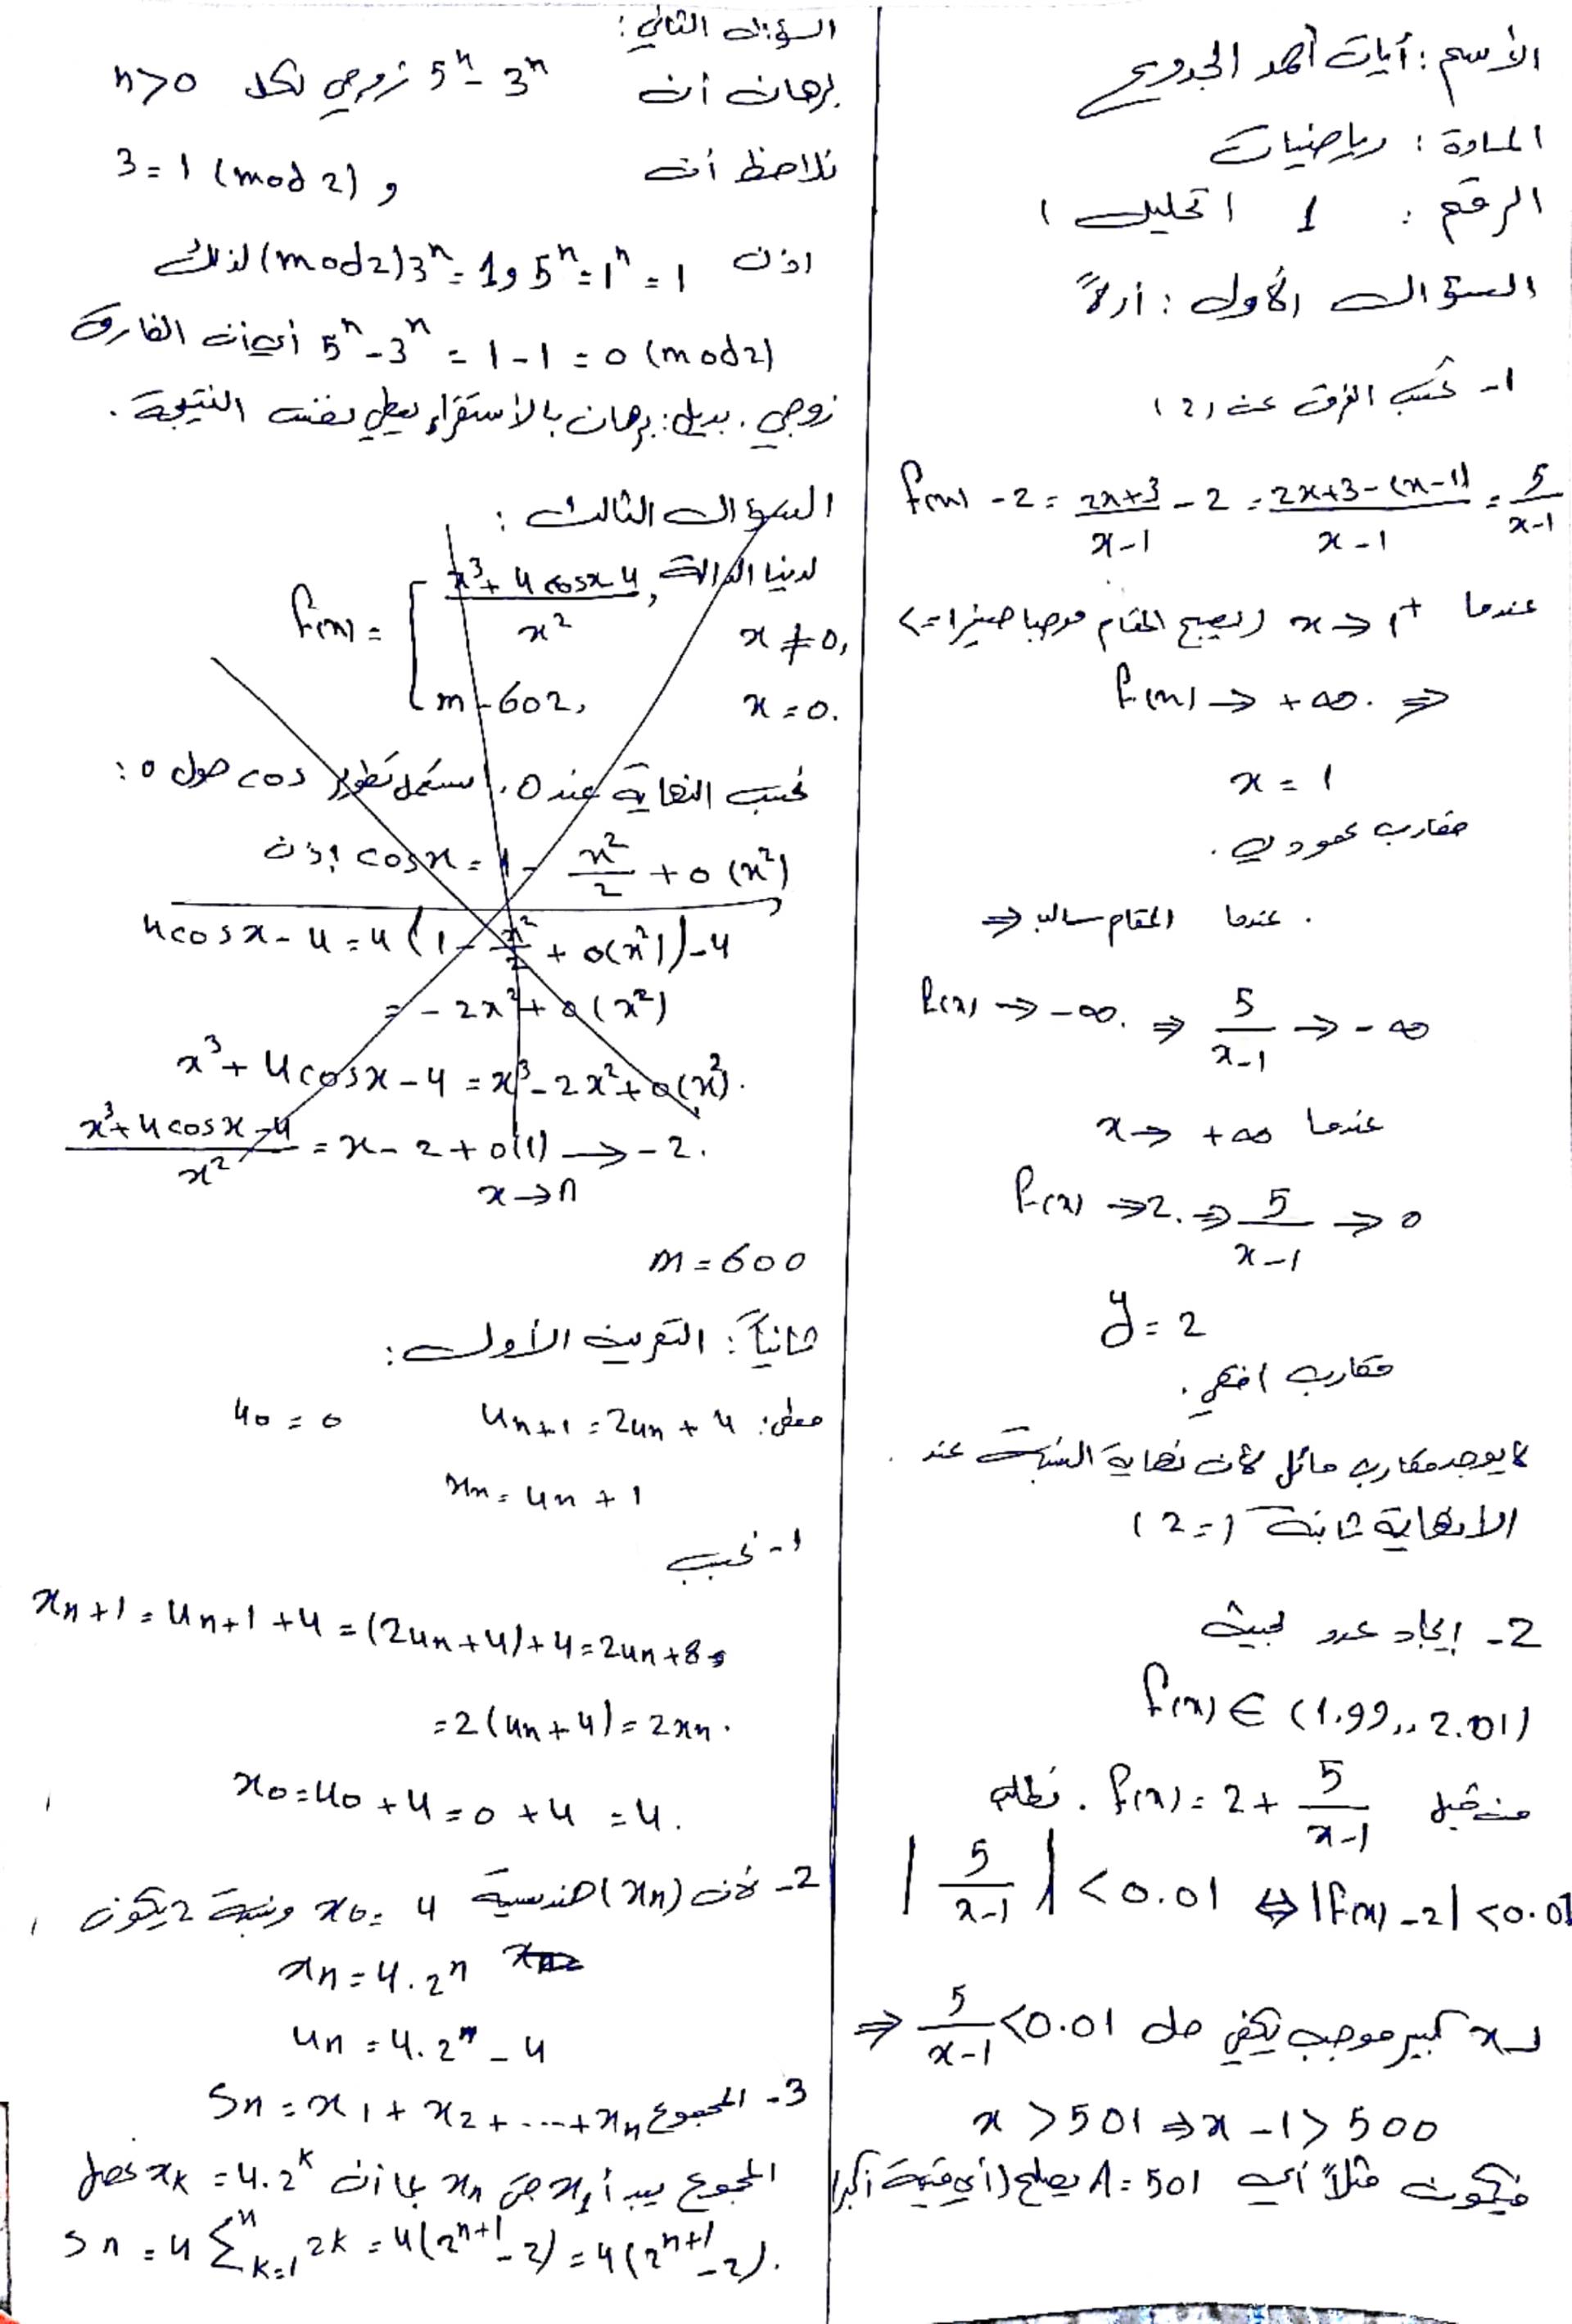 الأسم: آيات أحمد الجدوع
المادة: رياضيات
الرقم: 1 اتحليل 1
السؤال الأول: أولاً
1- نحسب الفرق عن (2)
f(x) - 2 = 2x+3/x-1 - 2 = 2x+3-(x-1)/x-1 = 5/x-1
عندما x → 1+ (يصبح المقام موجبا صغيرا =>
f(x) → +∞. ⇒
x = 1
مقارب عمودي.
عندما المقام سالب ⇒
f(x) → -∞. ⇒ 5/x-1 → -∞
عندما x → +∞
f(x) → 2. ⇒ 5/x-1 → 0
y = 2
مقارب افقي.
لا يوجد مقارب مائل لأن نهاية النسبة عند
الانهاية ثابتة (=2)
2- إيجاد عدد بحيث
f(x) ∈ (1.99,, 2.01)
من قبل f(x) = 2 + 5/x-1 . نطلب
|5/x-1| < 0.01 ⇔ |f(x) - 2| < 0.01
لـ x كبير موجب يكفي حل 5/x-1 < 0.01 ⇒
x > 501 ⇒ x - 1 > 500
فيكون مثلاً أي A = 501 يصلح (أي قيمة أكبر)
السؤال الثاني:
برهان أن 5ⁿ - 3ⁿ زوجي لكل n>0
نلاحظ أن و 3 = 1 (mod 2)
اذن 5ⁿ = 1ⁿ = 1 و 3ⁿ = 1 (mod 2) لذلك
5ⁿ - 3ⁿ = 1 - 1 = 0 (mod 2) أي أن الفارق
زوجي. بديل: برهان بالأستقراء يعطي نفس النتيجة.
السؤال الثالث:
لدينا الدالة
f(x) = { x³+4cosx-4/x² , x ≠ 0,
m-602, x = 0.
نحسب النهاية عند 0. استعمل تطوير cos حول 0:
cosx = 1 - x²/2 + o(x²) إذن
4cosx - 4 = 4(1 - x²/2 + o(x²)) - 4
= -2x² + o(x²)
x³ + 4cosx - 4 = x³ - 2x² + o(x²).
x³+4cosx-4/x² = x - 2 + o(1) → -2.
x → 0
m = 600
ثانياً: التمرين الأول:
معطى: un+1 = 2un + 4 u0 = 0
xn = un + 1
1- نحسب
xn+1 = un+1 + 4 = (2un+4)+4 = 2un+8,
= 2(un+4) = 2xn.
x0 = u0 + 4 = 0 + 4 = 4.
2- لأن (xn) هندسية x0 = 4 ونسبة 2 يكون
xn = 4.2ⁿ
un = 4.2ⁿ - 4
3- المجموع Sn = x1 + x2 + ... + xn
المجموع يبدأ من x1 بما أن xk = 4.2ᵏ
Sn = 4 Σⁿk=1 2k = 4(2ⁿ⁺¹ - 2) = 4(2ⁿ⁺¹ - 2).